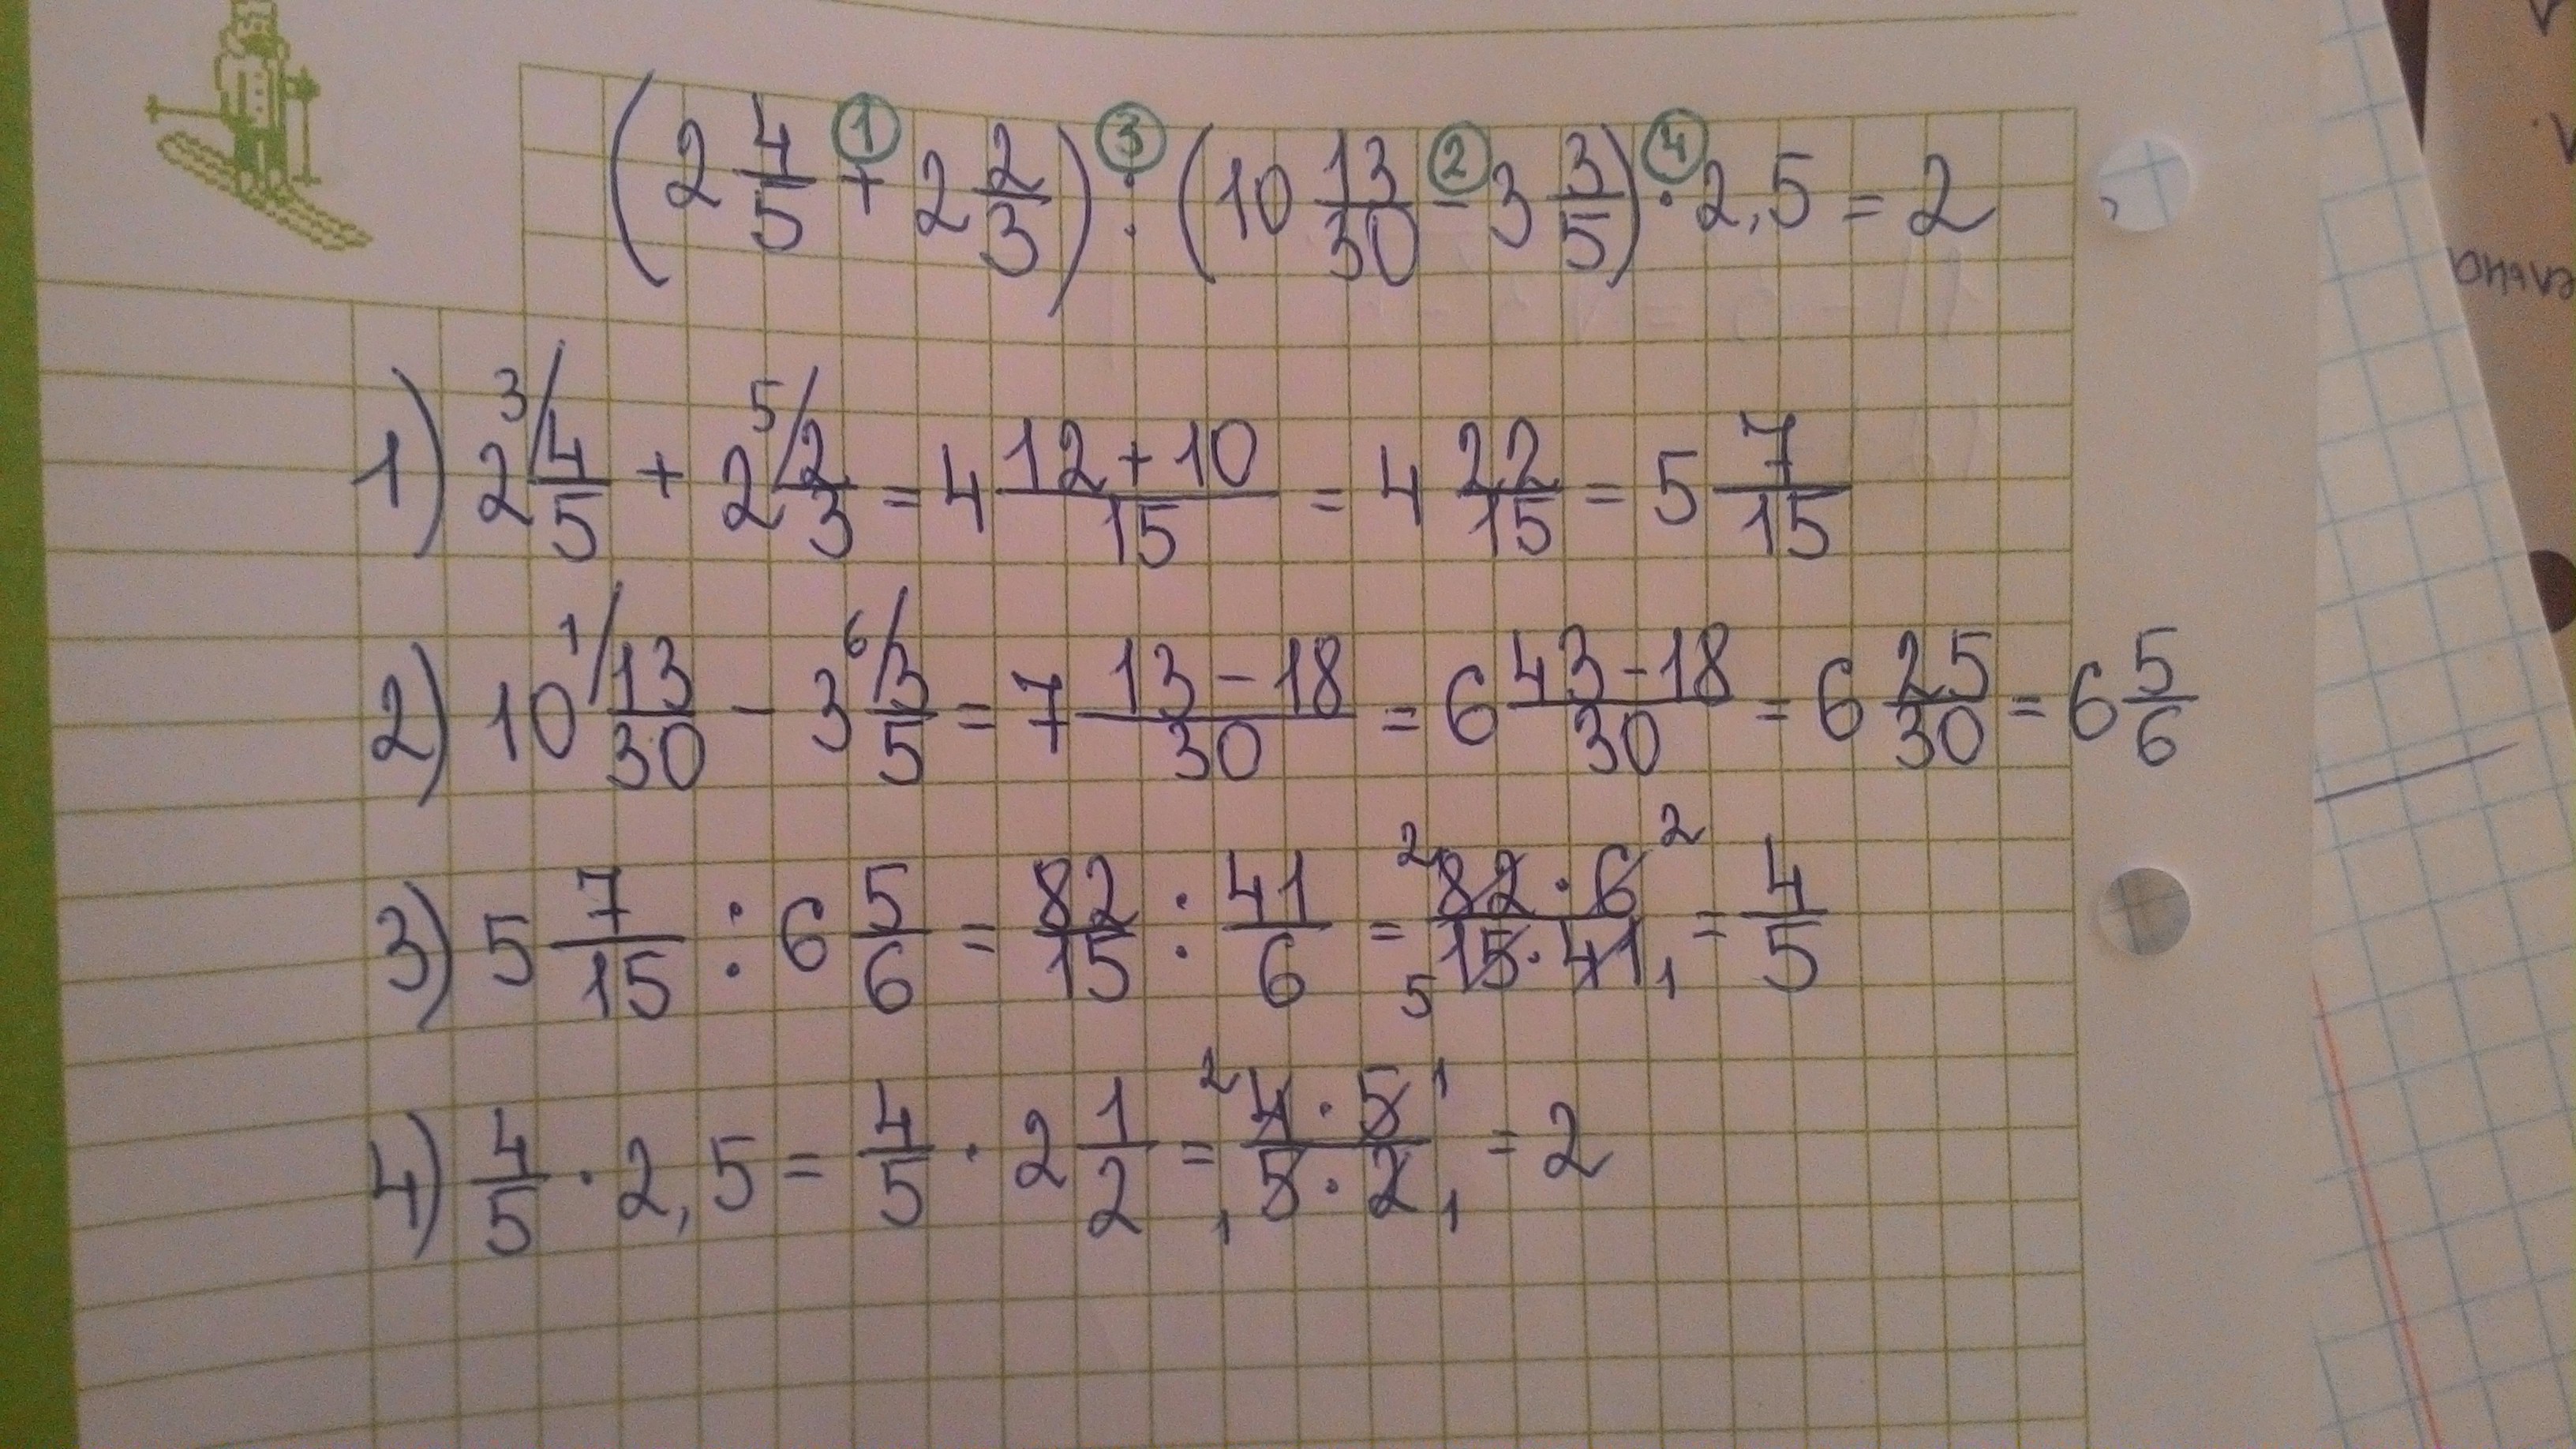 (2 4/5 + 2 2/3) : (10 13/30 - 3 3/5) · 2,5 = 2
① ③ ② ④
1) 2 4/5 + 2 2/3 = 4 (12+10)/15 = 4 22/15 = 5 7/15
3/ 5/
2) 10 13/30 - 3 3/5 = 7 (13-18)/30 = 6 (43-18)/30 = 6 25/30 = 6 5/6
1/ 6/
3) 5 7/15 : 6 5/6 = 82/15 : 41/6 = (82 · 6)/(15 · 41) = 4/5
2 2 5 1
4) 4/5 · 2,5 = 4/5 · 2 1/2 = (4 · 5)/(5 · 2) = 2
2 1 1 1